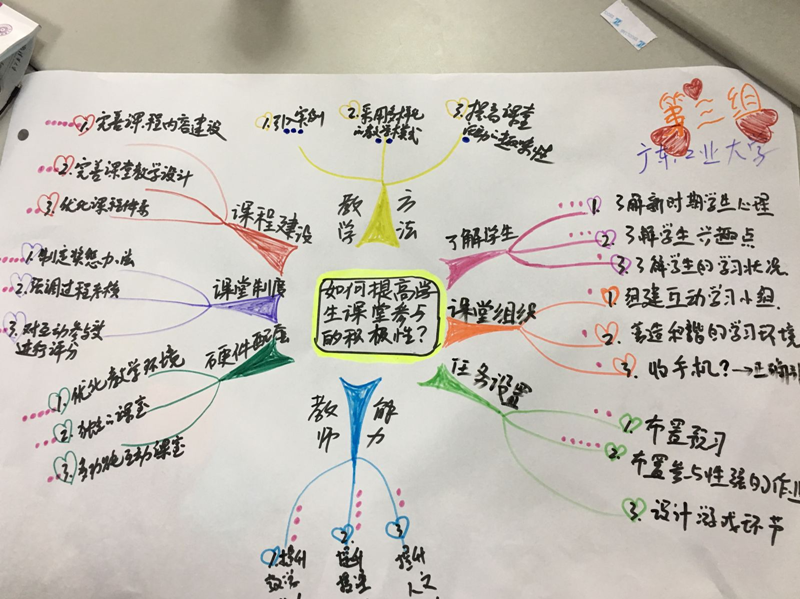 第三组
广东工业大学
如何提高学
生课堂参与
的积极性?
教学方法
1.引入案例
2.采用多样化
的教学模式
3.提高课堂
互动的趣味性
了解学生
1.了解新时期学生心理
2.了解学生兴趣点
3.了解学生的学习状况
课堂组织
1.组建互动学习小组
2.营造和谐的学习环境
3.收手机?→正确
任务设置
1.布置预习
2.布置参与性强的作业
3.设计游戏环节
教师能力
1.提升
教学
2.提升
3.提升
人
硬件配套
1.优化教学环境
2.课堂
3.多功能互动课堂
课堂制度
1.制定奖惩办法
2.强调过程考核
3.对互动参与
进行评分
课程建设
1.完善课程内容建设
2.完善课堂教学设计
3.优化课程